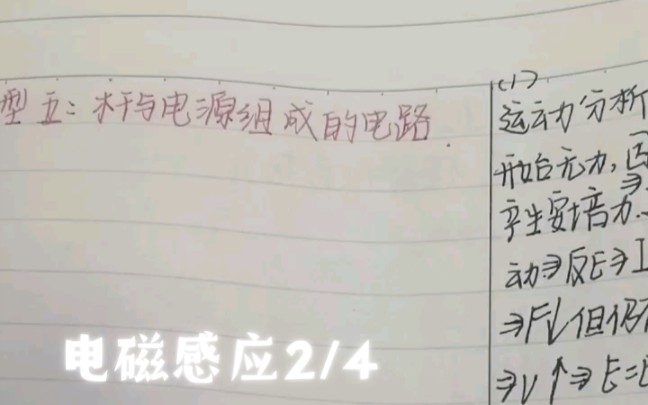 型五：杆与电源组成的电路.
(1)
运动分析
开始无力,
产生安培力.
动⇒反E⇒I
⇒F↓但仍
⇒V↑⇒E=
电磁感应2/4